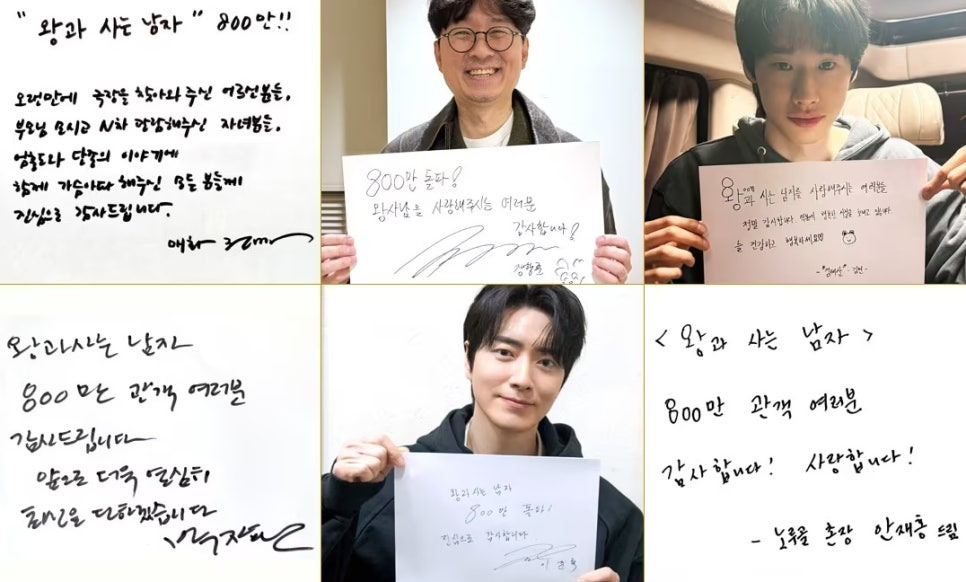 " 왕과 사는 남자 " 800만!!
오랜만에 극장을 찾아와 주신 어르신분들,
부모님 모시고 N차 관람해주신 자녀분들,
엄흥도와 단종의 이야기에
함께 가슴아파 해주신 모든 분들께
진심으로 감사드립니다.
매화
800만 돌파!
왕사남을 사랑해주시는 여러분
감사합니다!
장항준
왕과 사는 남자를 사랑해주시는 여러분들
정말 감사합니다. 덕분에 행복한 보내고 있습니다
늘 건강하고 행복하세요
김민
왕과사는 남자
800만 관객 여러분
감사드립니다
앞으로 더욱 열심히
최선을 다하겠습니다
왕과 사는 남자
800만 돌파!
진심으로 감사합니다.
이준혁
< 왕과 사는 남자 >
800만 관객 여러분
감사합니다! 사랑합니다!
- 노루골 촌장 안재홍 드림